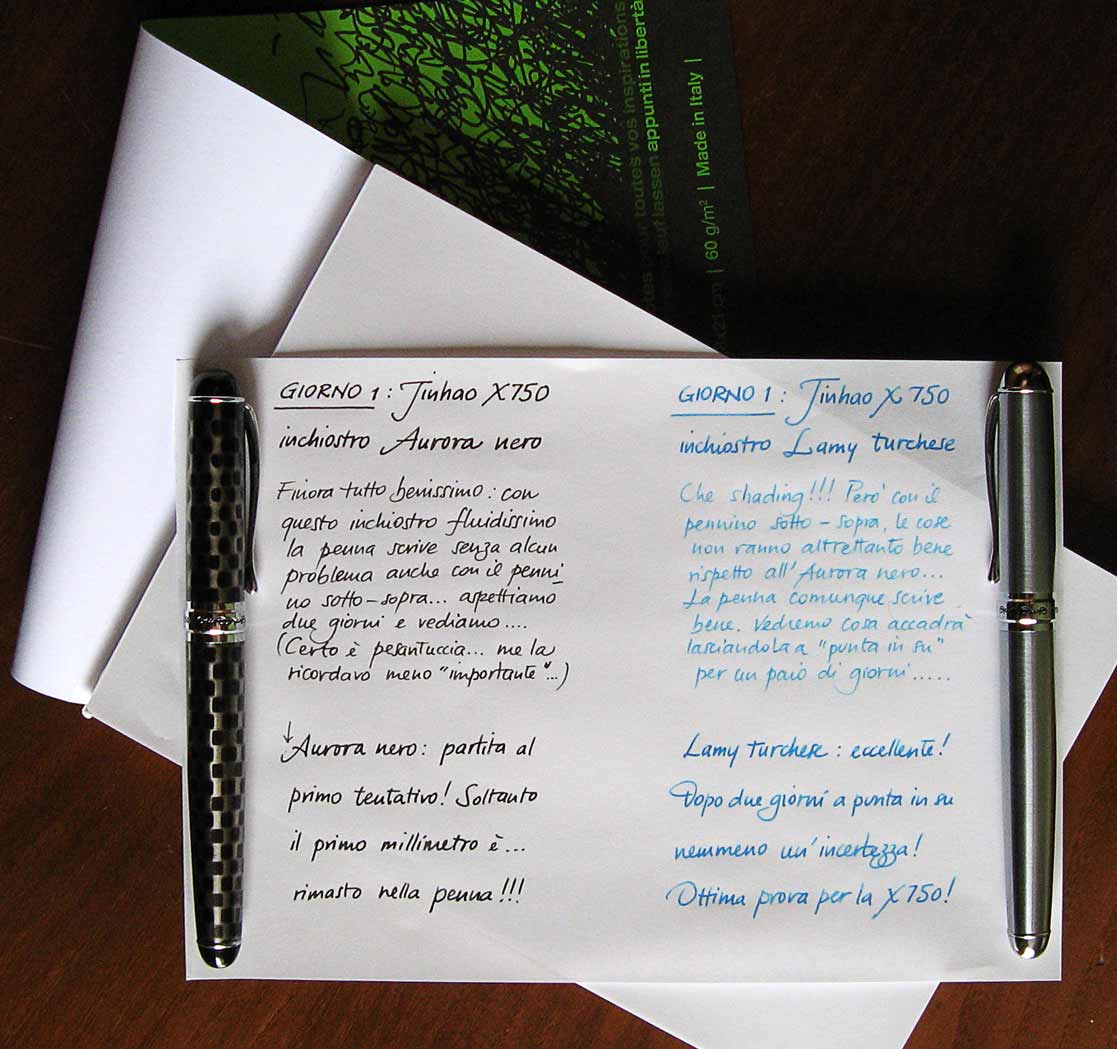 toutes vos inspirations
appunti in libertà
60 g/m² | Made in Italy |
GIORNO 1 : Jinhao X750
inchiostro Aurora nero
Finora tutto benissimo : con
questo inchiostro fluidissimo
la penna scrive senza alcun
problema anche con il penni_
no sotto-sopra... aspettiamo
due giorni e vediamo....
(Certo è pesantuccia... me la
ricordavo meno "importante"...)
↓Aurora nero: partita al
primo tentativo! Soltanto
il primo millimetro è...
rimasto nella penna!!!
GIORNO 1 : Jinhao X 750
inchiostro Lamy turchese
Che shading!!! Però con il
pennino sotto-sopra, le cose
non vanno altrettanto bene
rispetto all'Aurora nero...
La penna comunque scrive
bene. Vedremo cosa accadrà
lasciandola a "punta in su"
per un paio di giorni.....
Lamy turchese : eccellente!
Dopo due giorni a punta in su
nemmeno un'incertezza!
Ottima prova per la X750!